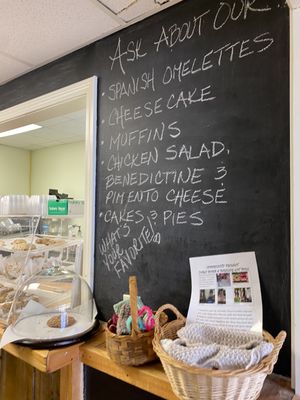 ASK ABOUT OUR...
• SPANISH OMELETTES
• CHEESE CAKE
• MUFFINS
• CHICKEN SALAD,
BENEDICTINE &
PIMENTO CHEESE
• CAKES & PIES
WHAT'S
YOUR
FAVORITE?